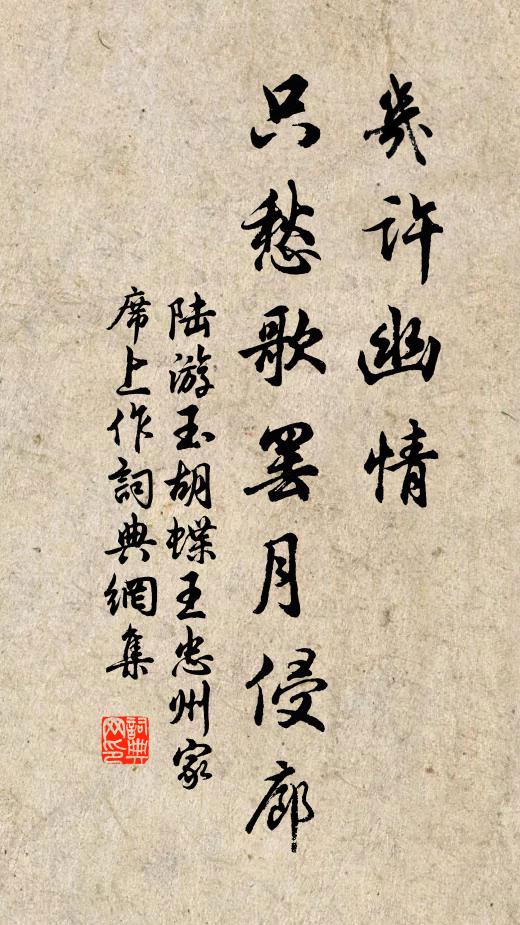 幾許幽情
只愁歌罷月侵廊
陸游玉胡蝶王忠州家
席上作詞典網集
詞典
网印